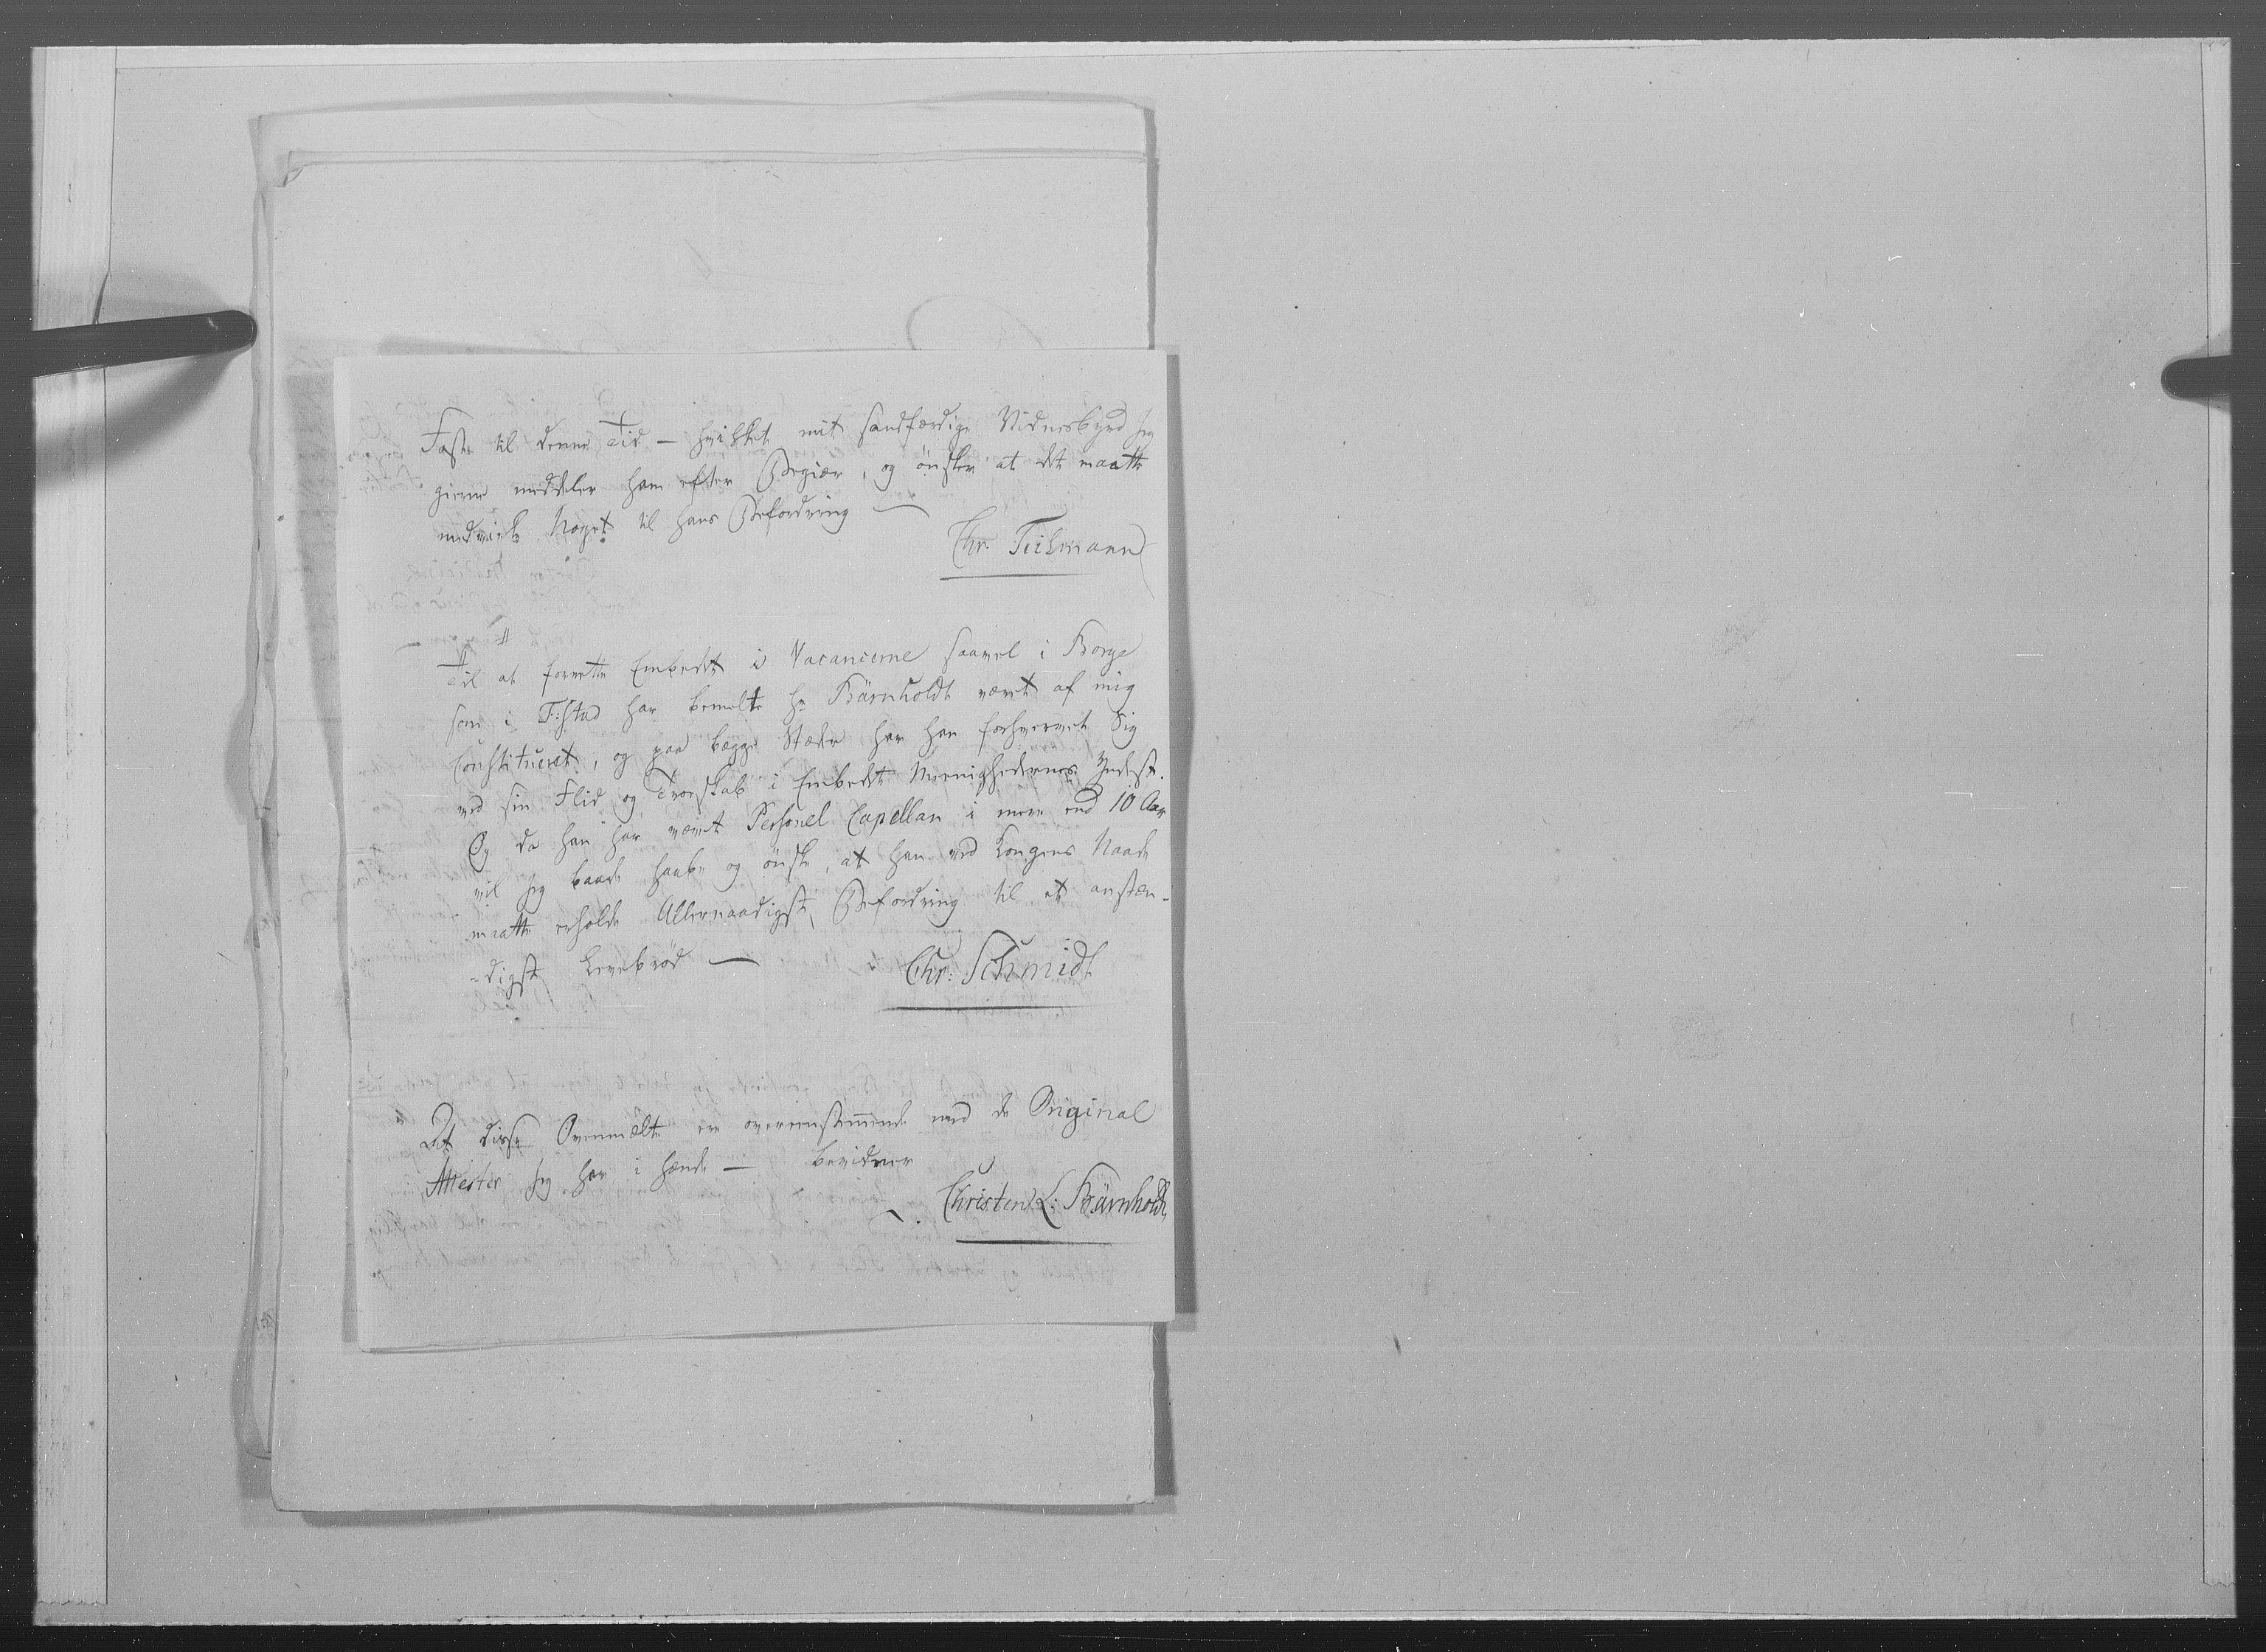 Faste til denne Tid — hvilket mit sandfærdige Vidnesbyrd jeg
gierne meddeler ham efter Begiær, og önsker at det maatte
medvirke Noget til hans Befordring —
Chr. Teilmann
Til at forrette Embedet i Vacancerne saavel i Borge
som i F:stad har bemelte Hr Bärnholdt været af mig
Constitueret, og paa begge Stæder har han forhvervet Sig
ved sin Flid og Troeskab i Embedet Meenighedernes Yndest.
Og da han har været Personel Capellan i mere end 10 Aar
vil jeg baade haabe og önske, at han ved Kongens Naade
maatte erholde Allernaadigst Befordring til et anstæn-
-digt Levebröd —
Chr: Schmidt
At disse Ovenmelte ere overeenstemmende med de Original
Attester jeg har i Hænde — bevidner
Christen L: Bärnholdt